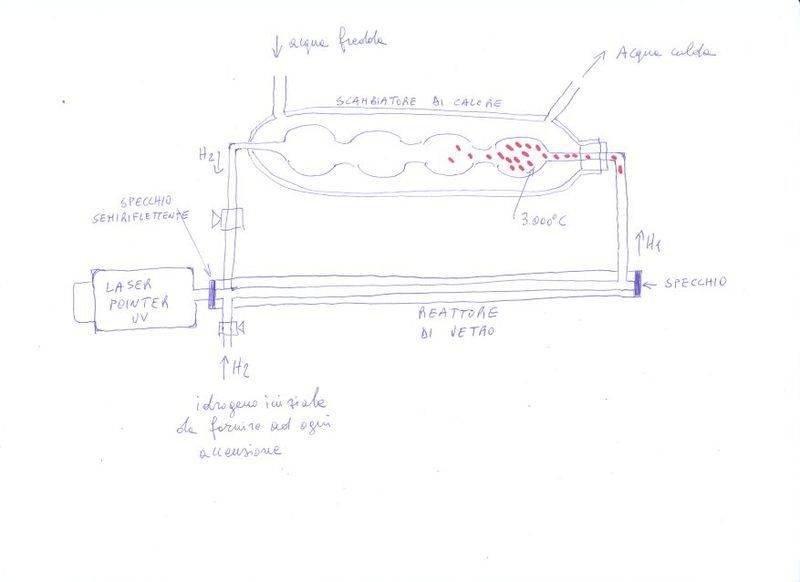 acqua fredda
Acqua calda
SCAMBIATORE DI CALORE
H2
3.000°C
SPECCHIO
SEMIRIFLETTENTE
H1
LASER
POINTER
UV
SPECCHIO
REATTORE
DI VETRO
H2
idrogeno iniziale
da fornire ad ogni
accensione